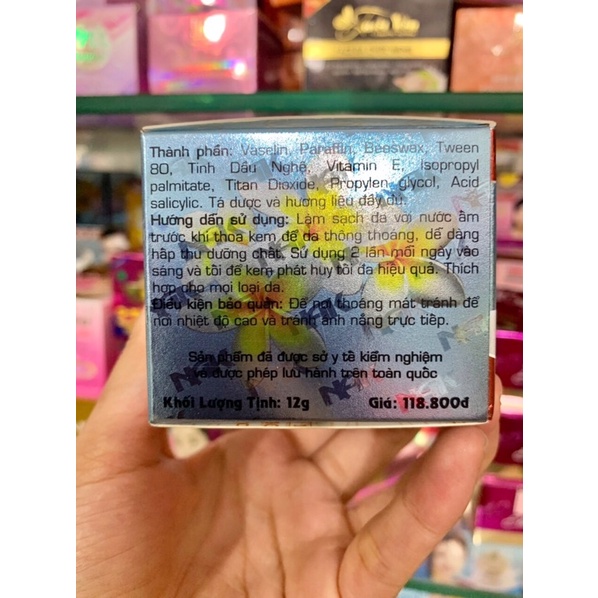 Thành phần: Vaselin, Paraffin, Beeswax, Tween
80, Tinh Dầu Nghệ, Vitamin E, Isopropyl
palmitate, Titan Dioxide, Propylen glycol, Acid
salicylic. Tá dược và hương liệu đầy đủ.
Hướng dẫn sử dụng: Làm sạch da với nước ấm
trước khi thoa kem để da thông thoáng, dễ dàng
hấp thu dưỡng chất. Sử dụng 2 lần mỗi ngày vào
sáng và tối để kem phát huy tối đa hiệu quả. Thích
hợp cho mọi loại da.
Điều kiện bảo quản: Để nơi thoáng mát tránh để
nơi nhiệt độ cao và tránh ánh nắng trực tiếp.
Sản phẩm đã được sở y tế kiểm nghiệm
và được phép lưu hành trên toàn quốc
Khối Lượng Tịnh: 12g Giá: 118.800đ